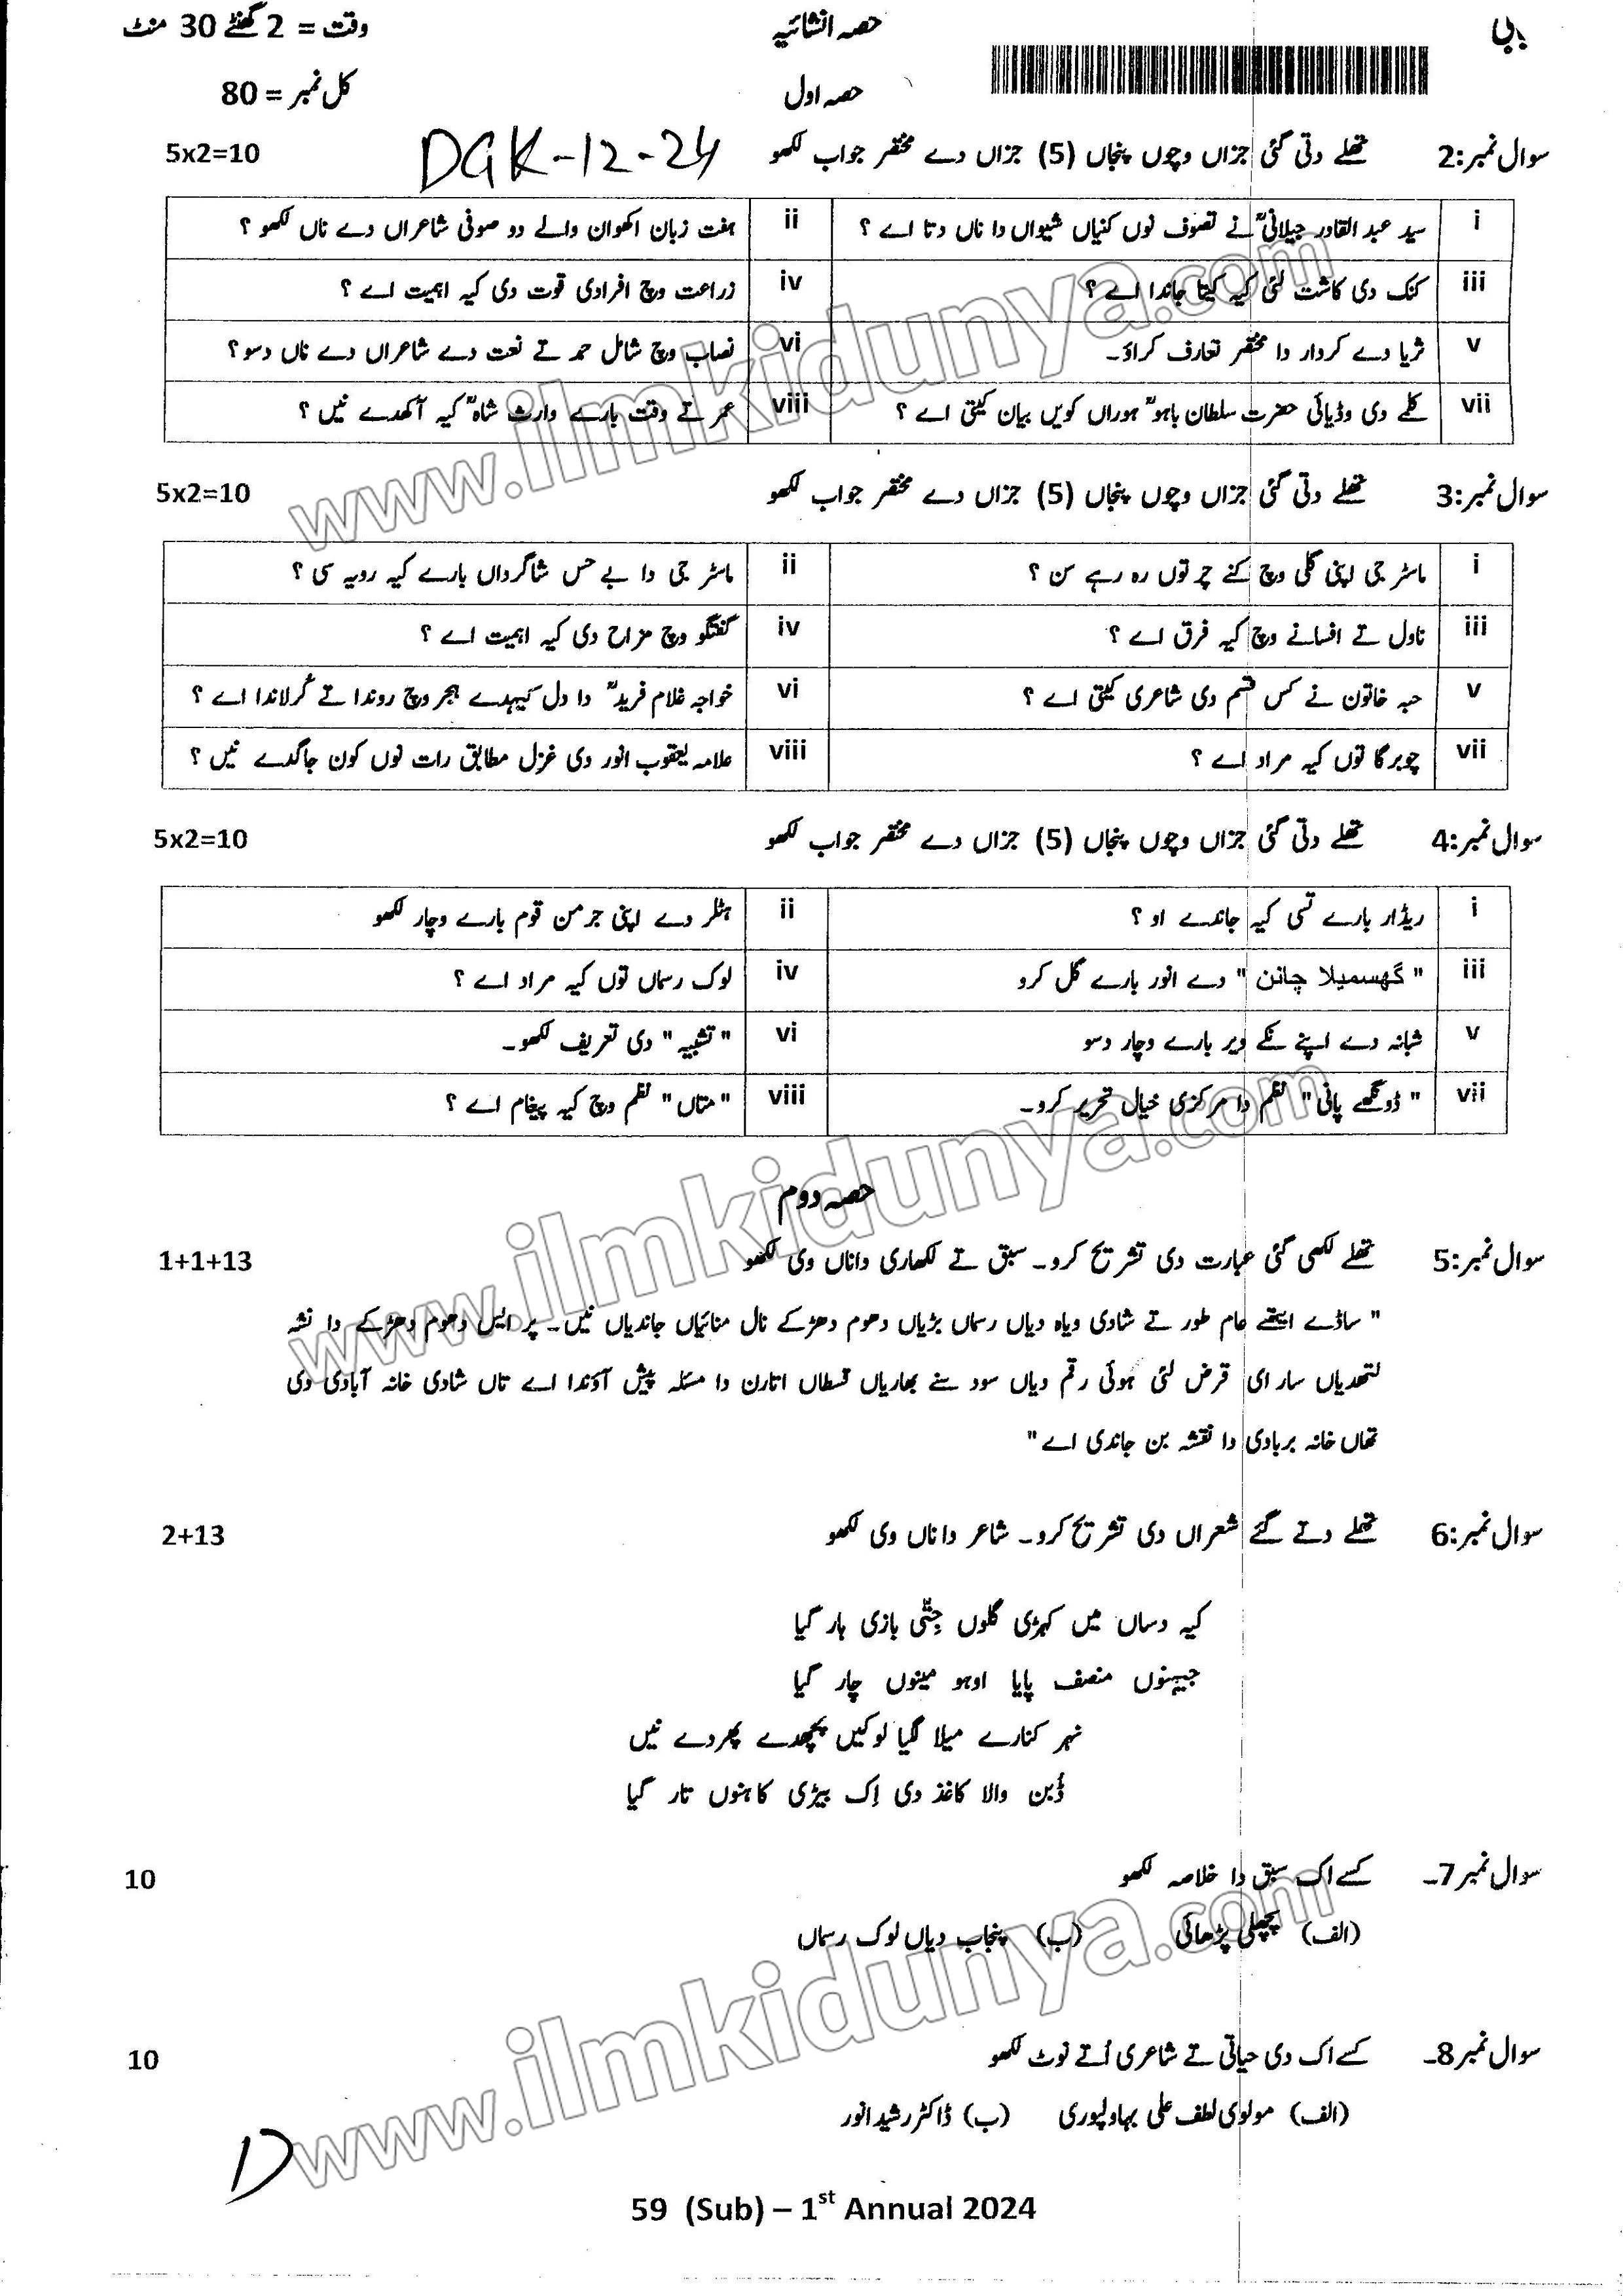 حصہ انشائیہ
وقت = 2 گھنٹے 30 منٹ
حصہ اول
کل نمبر = 80
سوال نمبر:2 تھلے دتی گئی جزاں وچوں پنجاں (5) جزاں دے مختصر جواب لکھو DGK-12-24 5x2=10
i سید عبد القادر جیلانیؒ نے تصوف نوں کنیاں شیواں دا ناں دتا اے ؟ ii ہفت زبان اکھوان والے دو صوفی شاعراں دے ناں لکھو ؟
iii کنک دی کاشت لئی کیہ کیتا جاندا اے ؟ iv زراعت وچ افرادی قوت دی کیہ اہمیت اے ؟
v ثریا دے کردار دا مختصر تعارف کراؤ۔ vi نصاب وچ شامل حمد تے نعت دے شاعراں دے ناں دسو ؟
vii کلمے دی وڈیائی حضرت سلطان باہوؒ ہوراں کویں بیان کیتی اے ؟ viii عمر تے وقت بارے وارث شاہؒ کیہ آکھدے نیں ؟
سوال نمبر:3 تھلے دتی گئی جزاں وچوں پنجاں (5) جزاں دے مختصر جواب لکھو 5x2=10
i ماسٹر جی اپنی گلی وچ کنے چر توں رہ رہے سن ؟ ii ماسٹر جی دا بے حس شاگرداں بارے کیہ رویہ سی ؟
iii ناول تے افسانے وچ کیہ فرق اے ؟ iv گفتگو وچ مزاح دی کیہ اہمیت اے ؟
v حبہ خاتون نے کس قسم دی شاعری کیتی اے ؟ vi خواجہ غلام فریدؒ دا دل کیہدے ہجر وچ روندا تے کُرلاندا اے ؟
vii چوبرگا توں کیہ مراد اے ؟ viii علامہ یعقوب انور دی غزل مطابق رات نوں کون جاگدے نیں ؟
سوال نمبر:4 تھلے دتی گئی جزاں وچوں پنجاں (5) جزاں دے مختصر جواب لکھو 5x2=10
i ریڈار بارے تسی کیہ جاندے او ؟ ii ہٹلر دے اپنی جرمن قوم بارے وچار لکھو
iii " گھسمیلا چانن " دے انور بارے گل کرو iv لوک رسماں توں کیہ مراد اے ؟
v شبانہ دے اپنے نکے ویر بارے وچار دسو vi " تشبیہ " دی تعریف لکھو۔
vii " ڈونگھے پانی " نظم دا مرکزی خیال تحریر کرو۔ viii " متاں " نظم وچ کیہ پیغام اے ؟
حصہ دوم
سوال نمبر:5 تھلے لکھی گئی عبارت دی تشریح کرو۔ سبق تے لکھاری دا ناں وی لکھو 1+1+13
" ساڈے ایتھے عام طور تے شادی ویاہ دیاں رسماں بڑیاں دھوم دھڑکے نال منائیاں جاندیاں نیں۔ پر ایس دھوم دھڑکے دا نشہ
لتھدیاں سار ای قرض لئی ہوئی رقم دیاں سود سنے بھاریاں قسطاں اتارن دا مسئلہ پیش آوندا اے تاں شادی خانہ آبادی دی
تھاں خانہ بربادی دا نقشہ بن جاندی اے "
سوال نمبر:6 تھلے دتے گئے شعراں دی تشریح کرو۔ شاعر دا ناں وی لکھو 2+13
کیہ دساں میں کہڑی گلوں جِتّی بازی ہار گیا
جیہنوں منصف پایا اوہو مینوں چار گیا
نہر کنارے میلا لگیا لوکیں پچھدے پھردے نیں
ڈُبن والا کاغذ دی اِک بیڑی کاہنوں تار گیا
سوال نمبر 7۔ کسے اک سبق دا خلاصہ لکھو 10
(الف) پچھلی پڑھائی (ب) پنجاب دیاں لوک رسماں
سوال نمبر 8۔ کسے اک دی حیاتی تے شاعری اُتے نوٹ لکھو 10
(الف) مولوی لطف علی بہاولپوری (ب) ڈاکٹر رشید انور
D
59 (Sub) – 1st Annual 2024
www.ilmkidunya.com
www.ilmkidunya.com
www.ilmkidunya.com